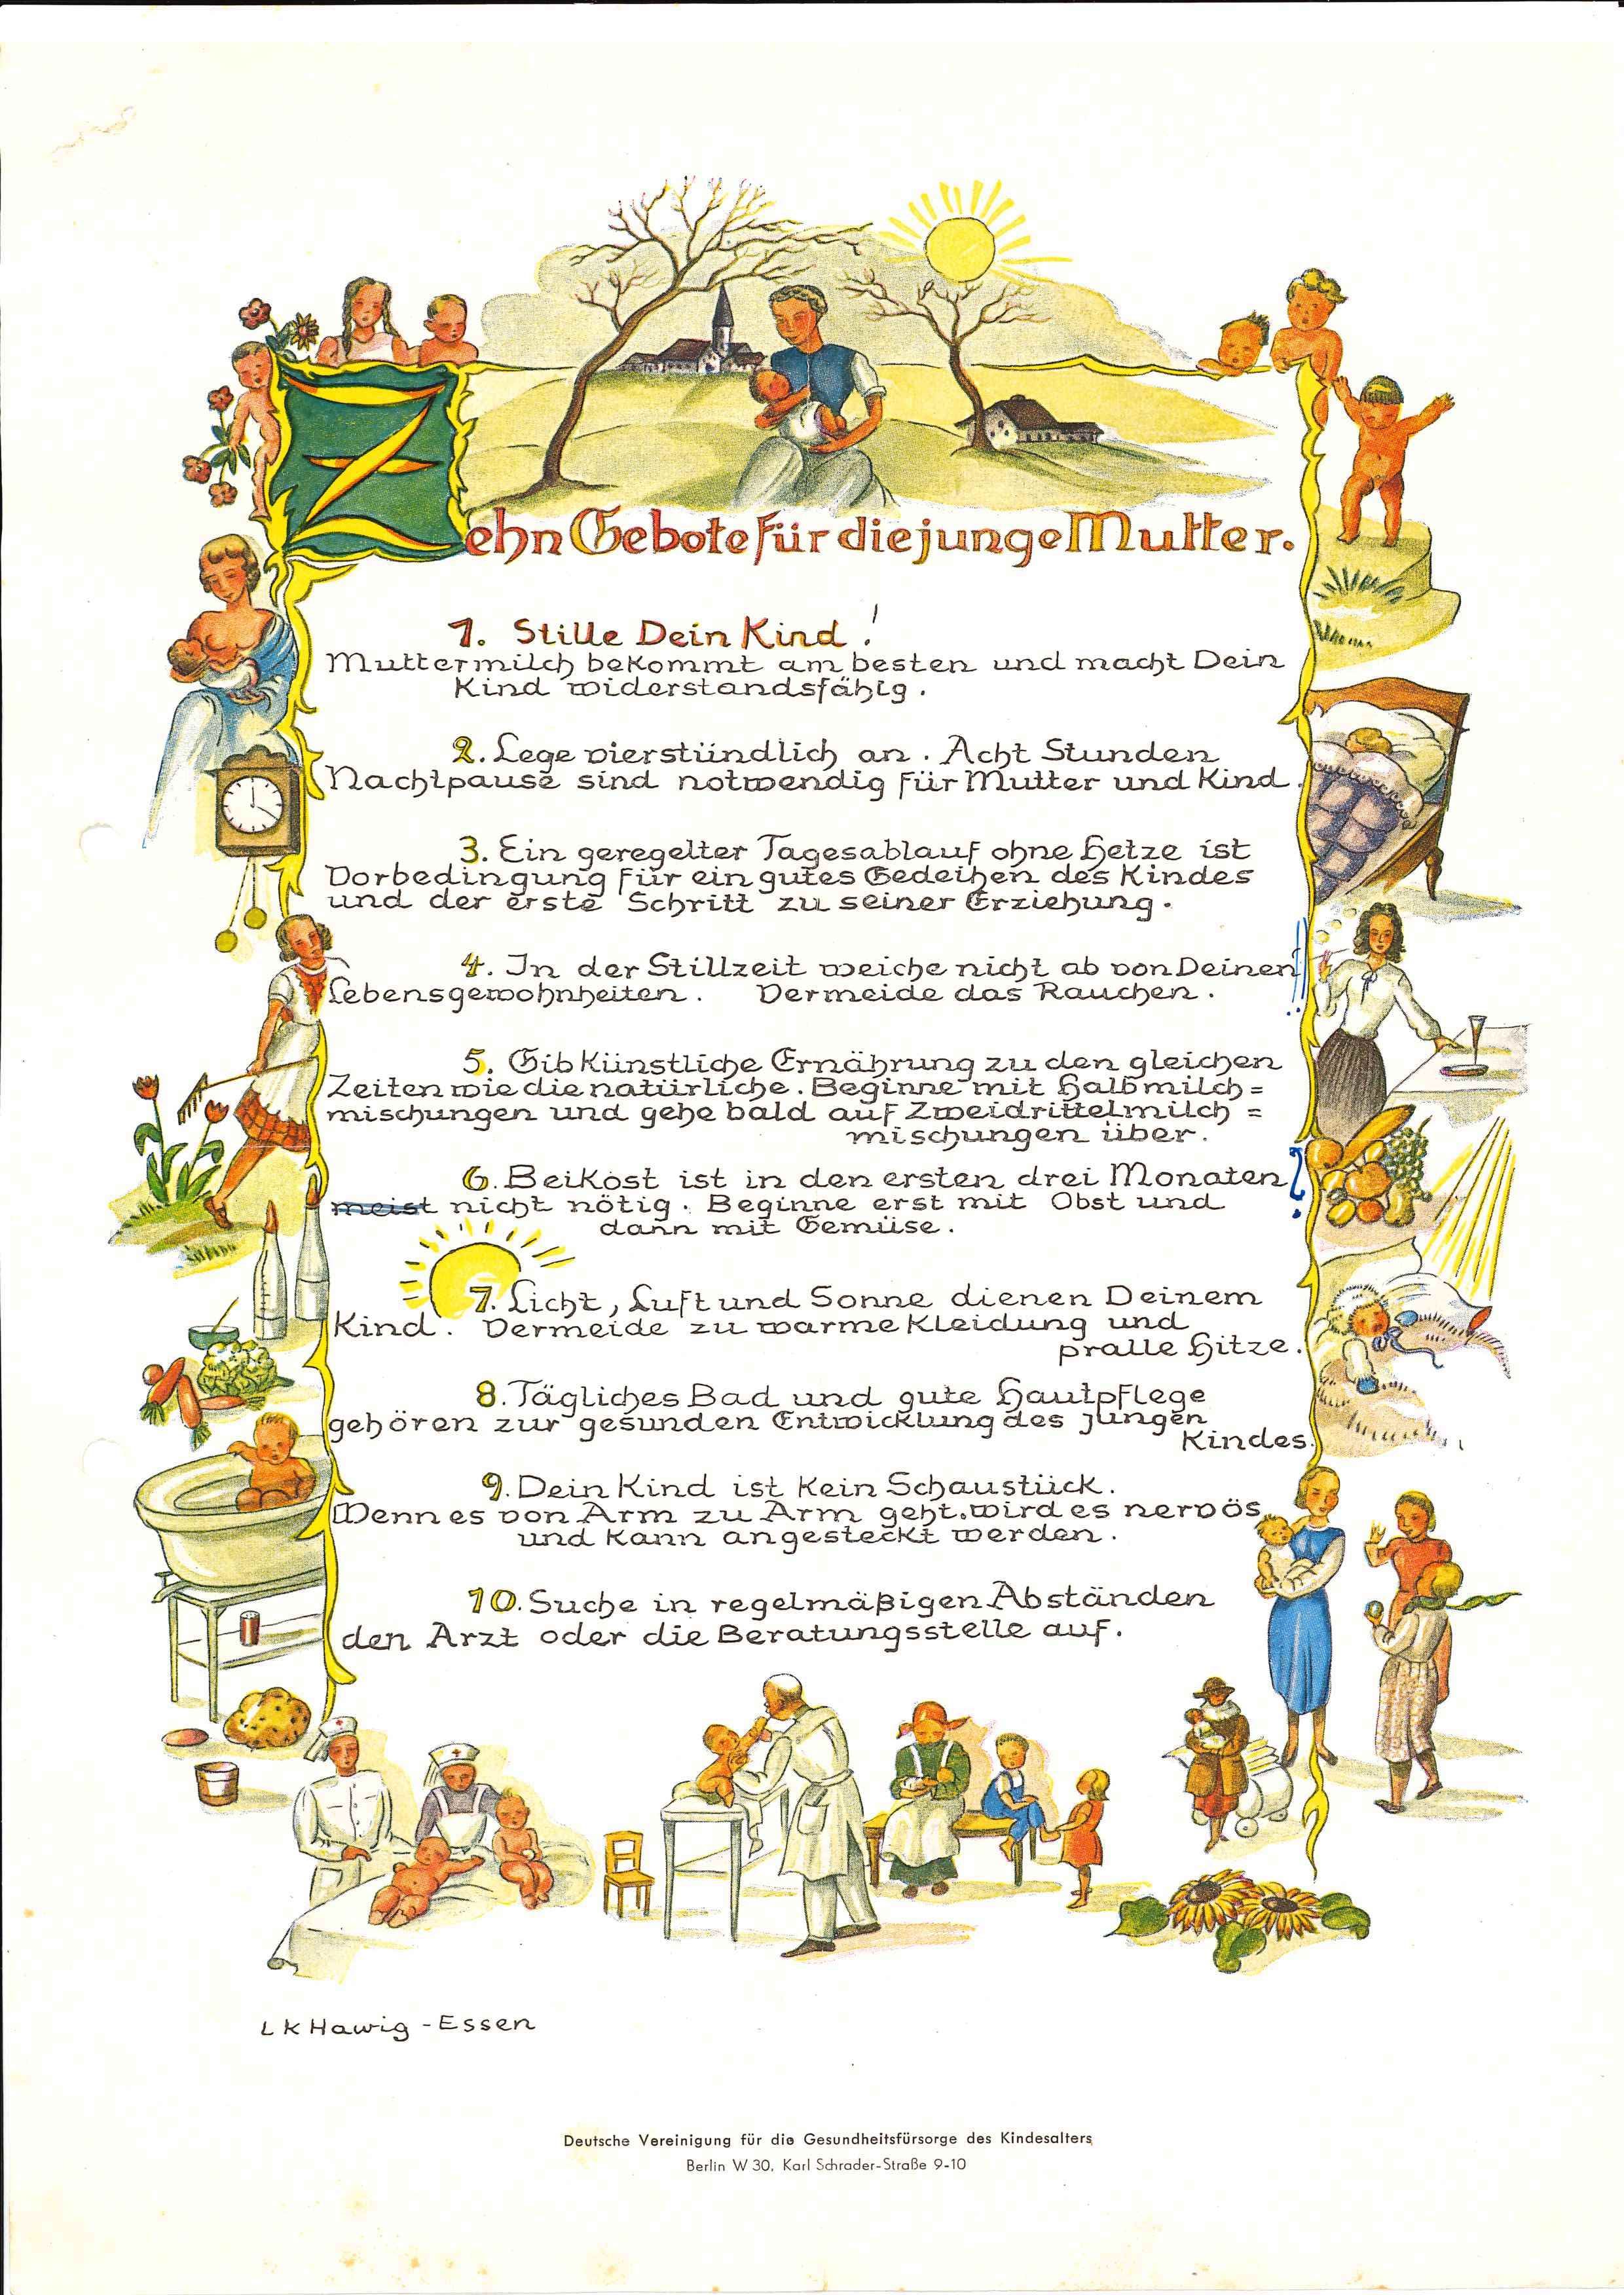 Zehn Gebote für die junge Mutter.
1. Stille Dein Kind!
Muttermilch bekommt am besten und macht Dein
Kind widerstandsfähig.
2. Lege vierstündlich an. Acht Stunden
Nachtpause sind notwendig für Mutter und Kind.
3. Ein geregelter Tagesablauf ohne Hetze ist
Vorbedingung für ein gutes Gedeihen des Kindes
und der erste Schritt zu seiner Erziehung.
4. In der Stillzeit weiche nicht ab von Deinen
Lebensgewohnheiten. Vermeide das Rauchen.
5. Gib künstliche Ernährung zu den gleichen
Zeiten wie die natürliche. Beginne mit Halbmilch=
mischungen und gehe bald auf Zweidrittelmilch=
mischungen über.
6. Beikost ist in den ersten drei Monaten
meist nicht nötig. Beginne erst mit Obst und
dann mit Gemüse.
7. Licht, Luft und Sonne dienen Deinem
Kind. Vermeide zu warme Kleidung und
pralle Hitze.
8. Tägliches Bad und gute Hautpflege
gehören zur gesunden Entwicklung des jungen
Kindes.
9. Dein Kind ist kein Schaustück.
Wenn es von Arm zu Arm geht, wird es nervös
und kann angesteckt werden.
10. Suche in regelmäßigen Abständen
den Arzt oder die Beratungsstelle auf.
LK Hawig - Essen
Deutsche Vereinigung für die Gesundheitsfürsorge des Kindesalters
Berlin W 30, Karl Schrader-Straße 9-10